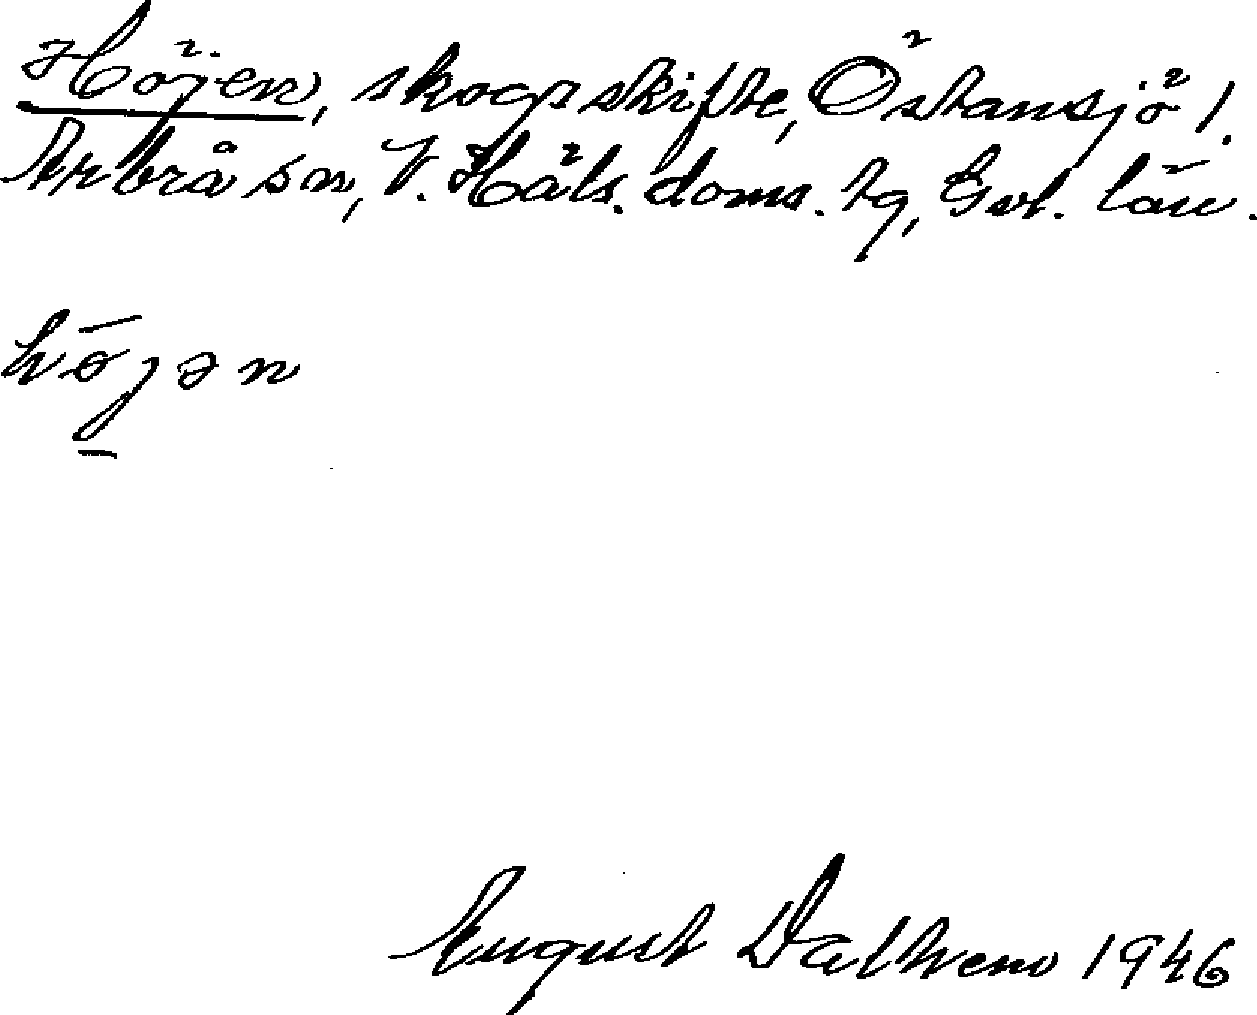 Höjen, skogsskifte, Östansjö 1.
Arbrå sn, V. Häls. doms. tg, Gvl. län.
hȫjən
August Dalhem 1946